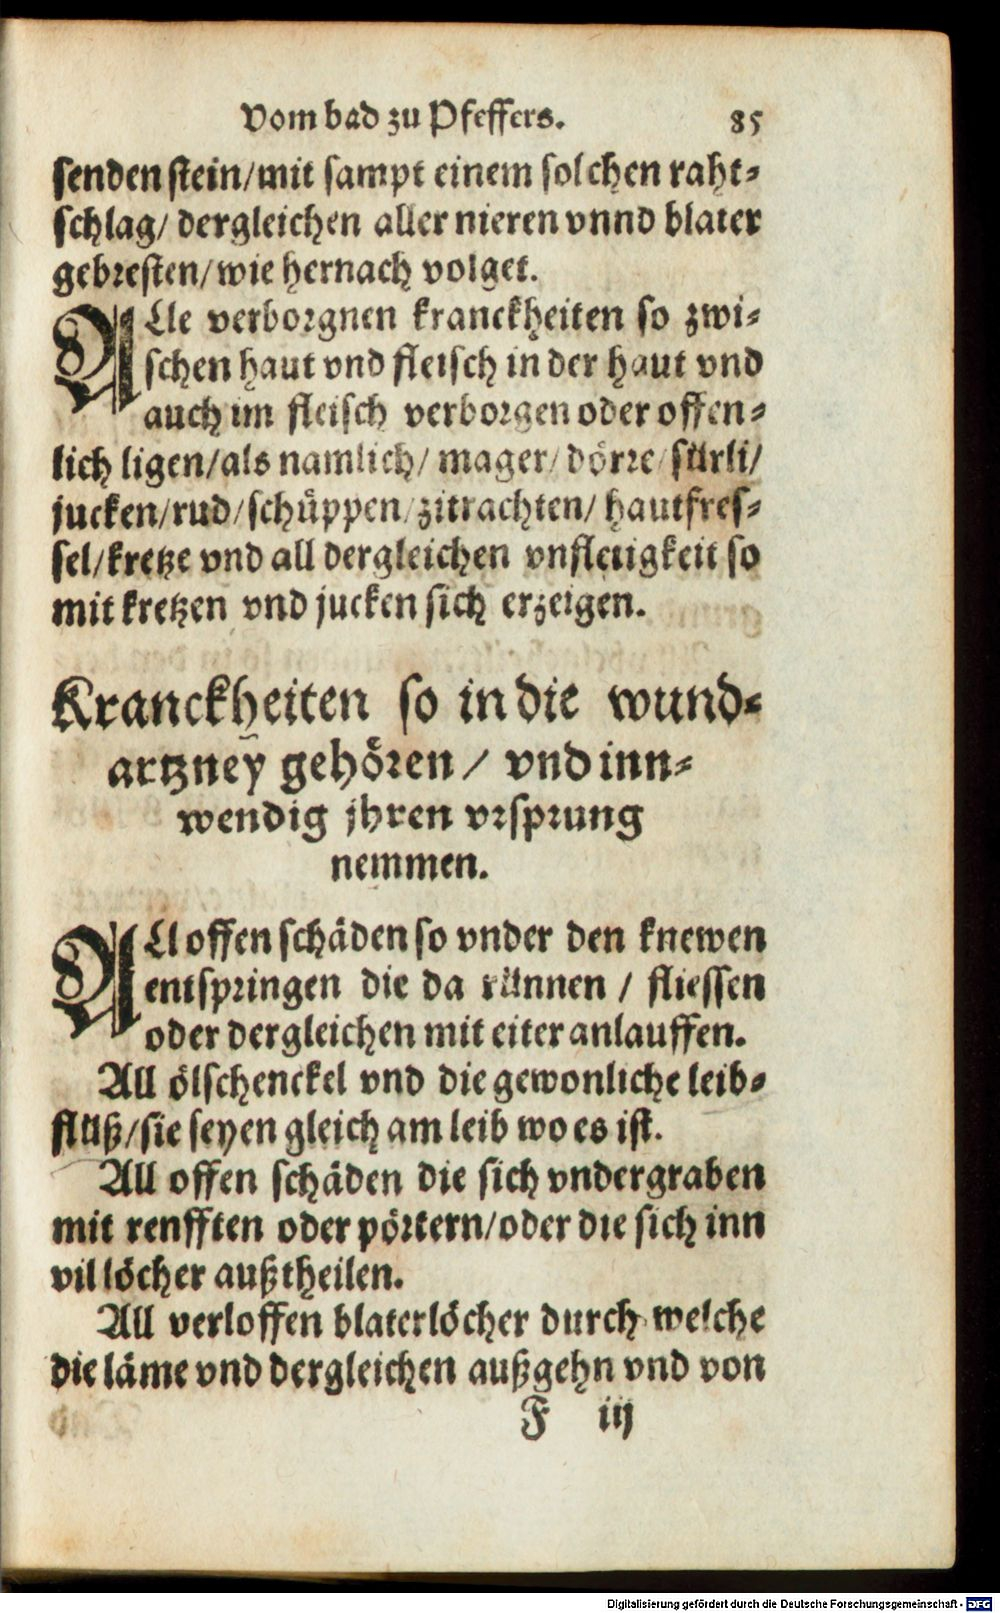 Vom bad zu Pfeffers. 85
senden stein/mit sampt einem solchen raht⸗
schlag/ dergleichen aller nieren vnnd blater
gebresten/wie hernach volget.
ALle verborgnen kranckheiten so zwi⸗
schen haut vnd fleisch in der haut vnd
auch im fleisch verborgen oder offen⸗
lich ligen/als namlich/ mager/dörre/sürli/
jucken/rud/schüppen/zitrachten/ hautfres⸗
sel/kretze vnd all dergleichen vnfletigkeit so
mit kretzen vnd jucken sich erzeigen.
Kranckheiten so in die wund⸗
artzney gehören / vnd inn⸗
wendig jhren vrsprung
nemmen.
ALl offen schäden so vnder den knewen
entspringen die da rünnen / fliessen
oder dergleichen mit eiter anlauffen.
All ölschenckel vnd die gewonliche leib⸗
flüß/sie seyen gleich am leib wo es ist.
All offen schäden die sich vndergraben
mit renfften oder pörtern/oder die sich inn
vil löcher außtheilen.
All verloffen blaterlöcher durch welche
die läme vnd dergleichen außgehn vnd von
F iij
Digitalisierung gefördert durch die Deutsche Forschungsgemeinschaft - DFG